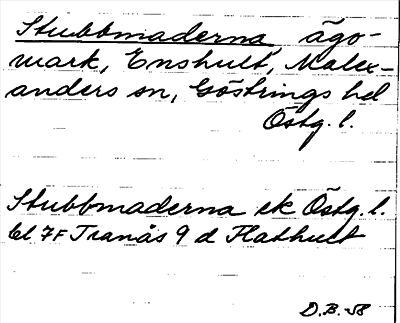 Stubbmaderna ägo-
mark, Enshult, Malex-
anders sn, Göstrings hd
Östg. l.
Stubbmaderna ek Östg. l.
bl 7F Tranås 9 d Flathult
D.B. -58